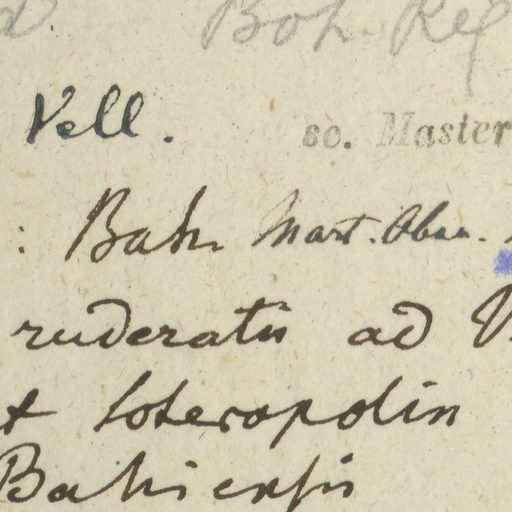 Vell.
sc. Master
: Bah. Mart. Obs.
ruderatis ad V
et Soteropolin
Bahiensis